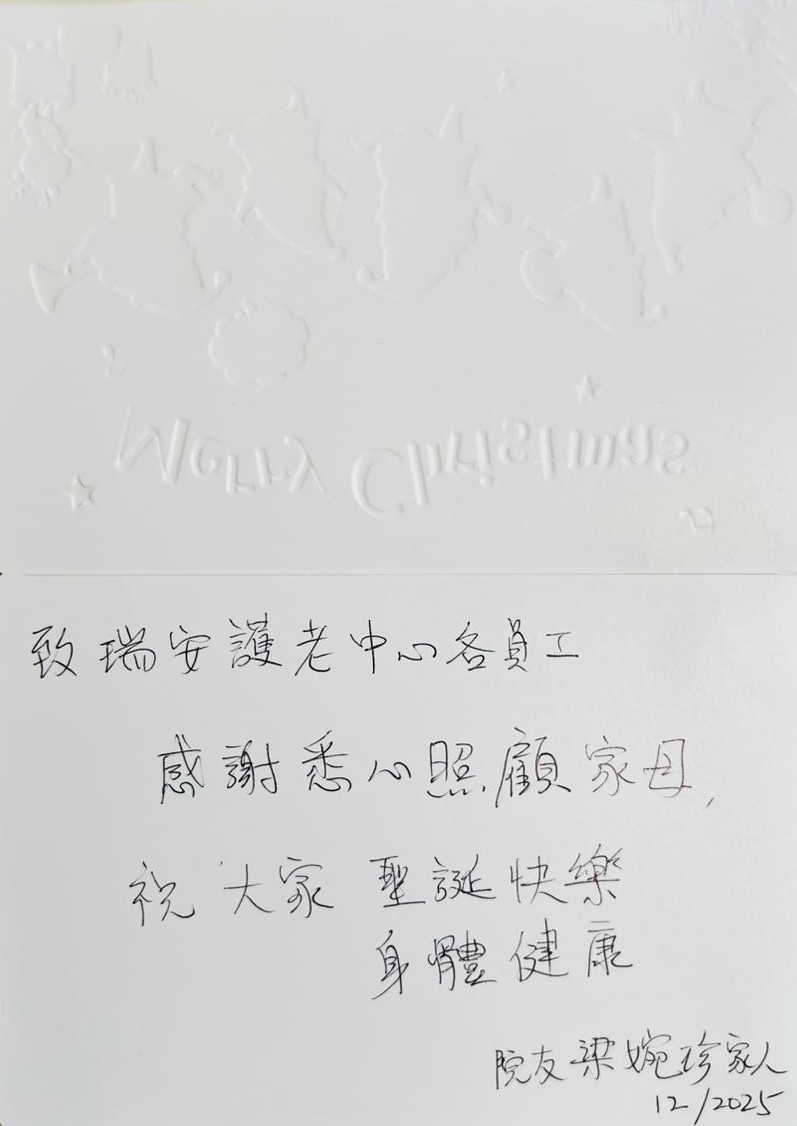 Merry Christmas
致瑞安護老中心各員工
感謝悉心照顧家母,
祝大家 聖誕快樂
身體健康
院友梁婉珍家人
12/2025